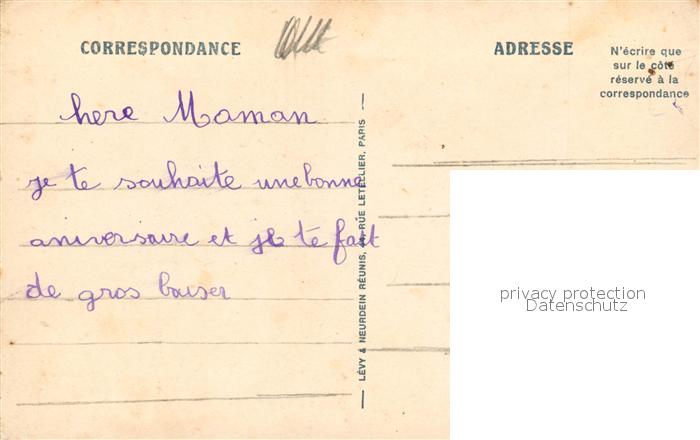 CORRESPONDANCE
ADRESSE
N'écrire que
sur le côté
réservé à la
correspondance
here Maman
je te souhaite unebonne
aniversaire et je te fait
de gros baiser
LÉVY & NEURDEIN RÉUNIS, RUE LETELLIER, PARIS
privacy protection
Datenschutz